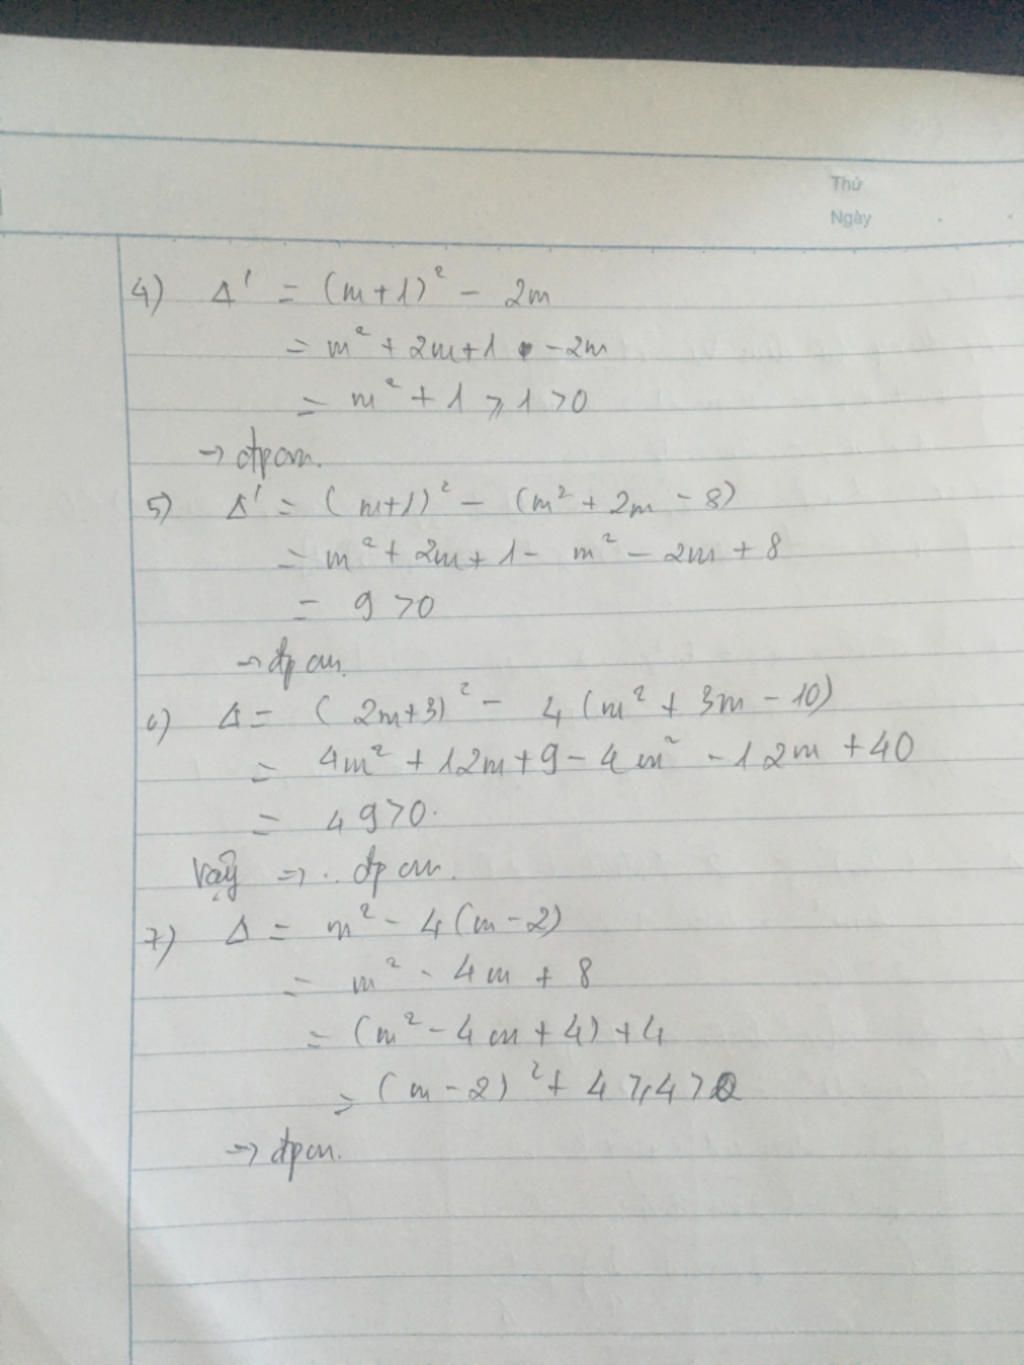 Thứ
Ngày
4) Δ' = (m+1)² - 2m
= m² + 2m+1 -2m
= m² + 1 ⩾ 1 > 0
→ đpcm.
5) Δ' = (m+1)² - (m² + 2m - 8)
= m² + 2m + 1 - m² - 2m + 8
= 9 > 0
→ đpcm.
6) Δ = (2m+3)² - 4 (m² + 3m - 10)
= 4m² + 12m + 9 - 4m² - 12m + 40
= 49 > 0.
Vậy => .. đpcm.
7) Δ = m² - 4(m-2)
= m² - 4m + 8
= (m² - 4m + 4) + 4
= (m - 2)² + 4 ⩾ 4 > 0
→ đpcm.